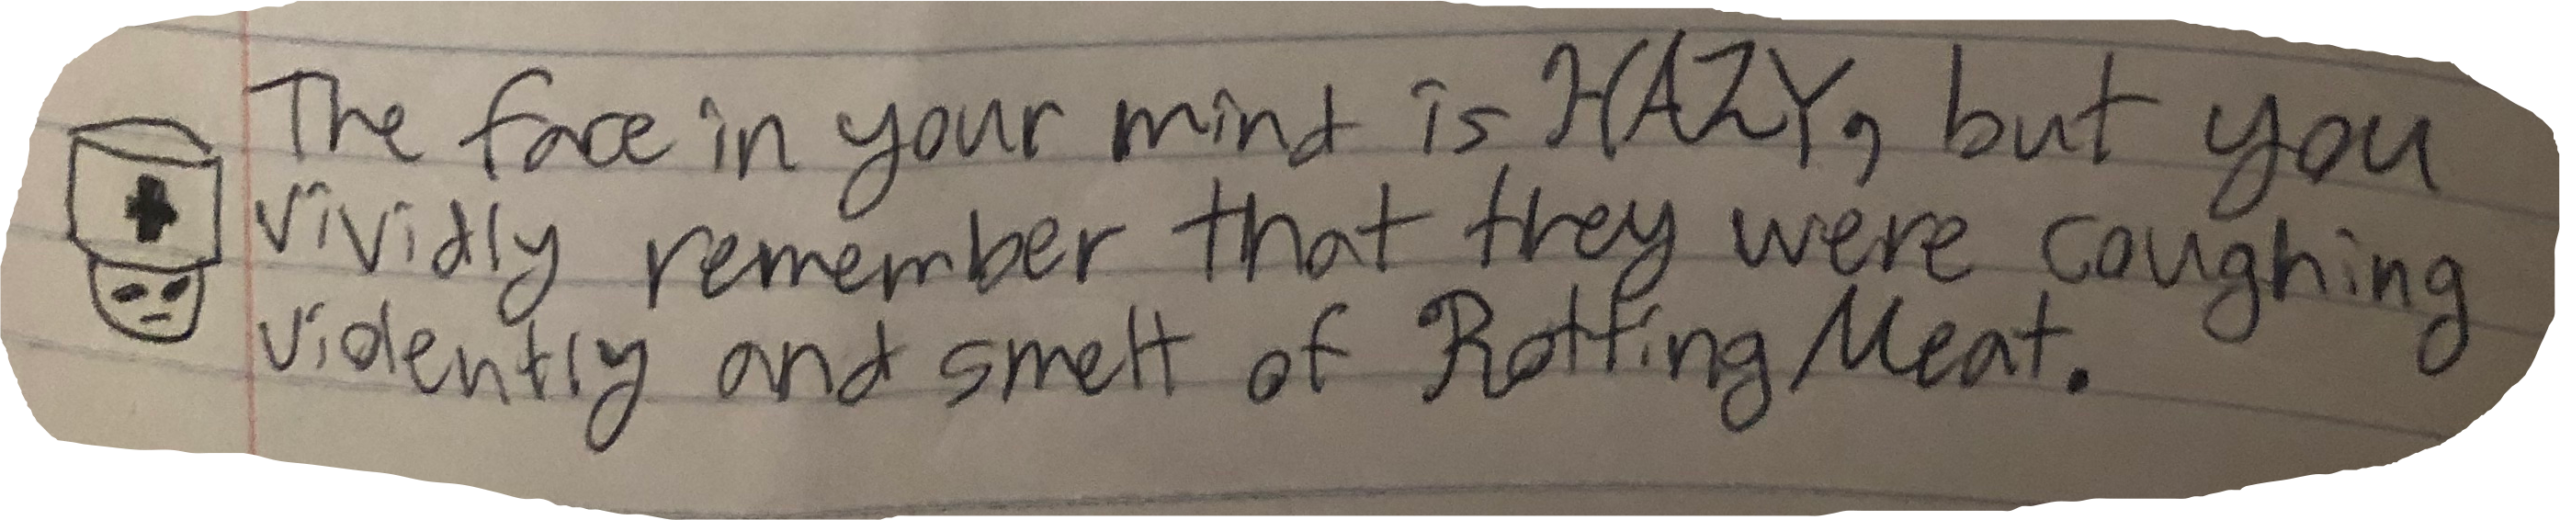 The face in your mind is HAZY, but you
vividly remember that they were coughing
violently and smelt of Rotting Meat.